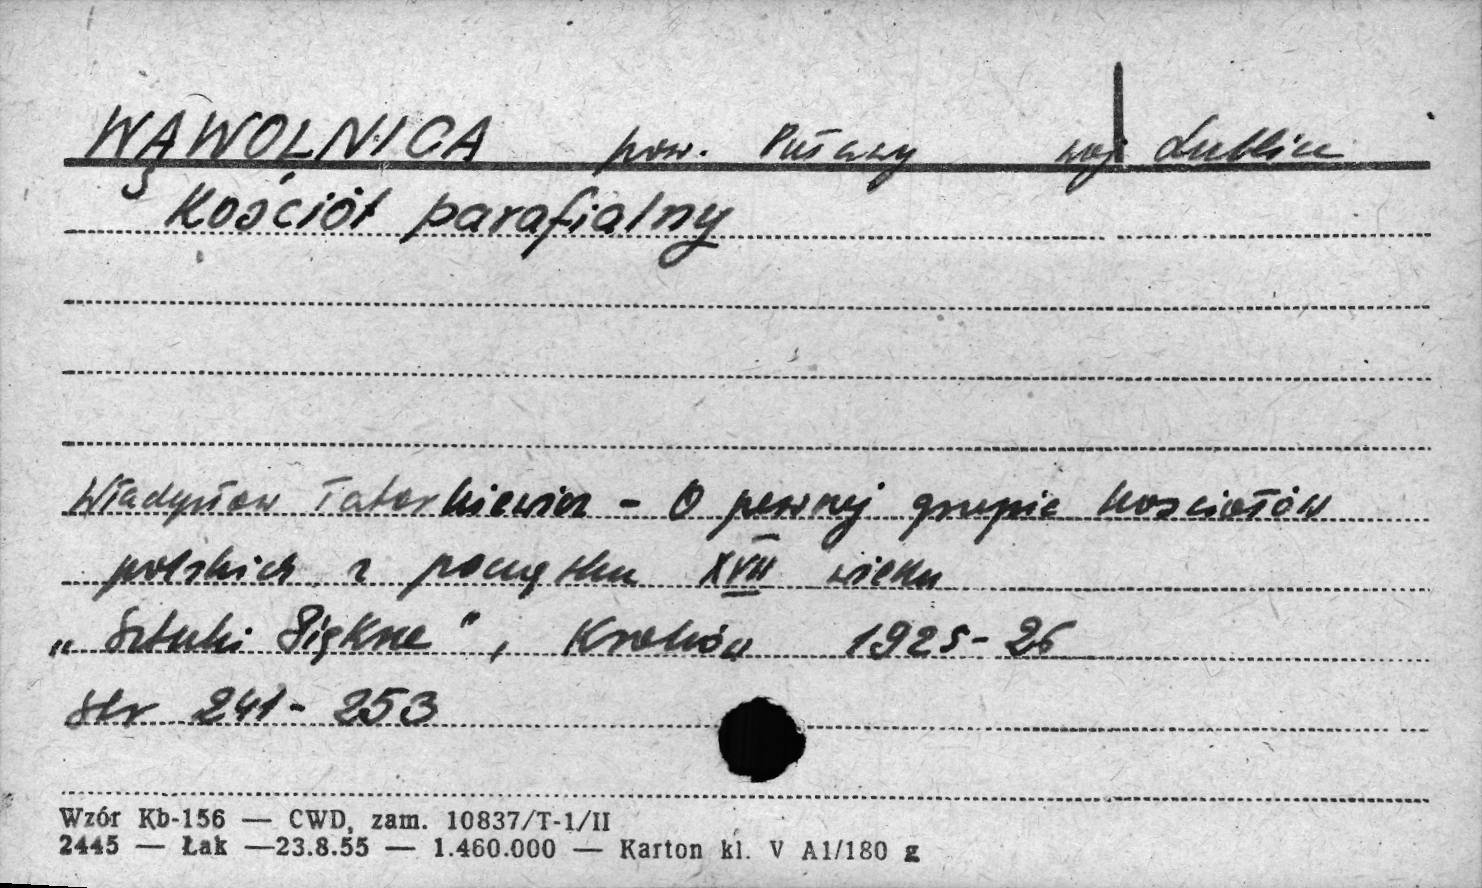 WĄWOLNICA pow. Puławy woj Lublin
Kościół parafialny
Władysław Tatarkiewicz - O pewnej grupie kościołów
polskich z początku XVII wieku
„Sztuki Piękne", Kraków 1925-26
str 241-253
Wzór Kb-156 — CWD, zam. 10837/T-1/II
2445 — Łak —23.8.55 — 1.460.000 — Karton kl. V A1/180 g